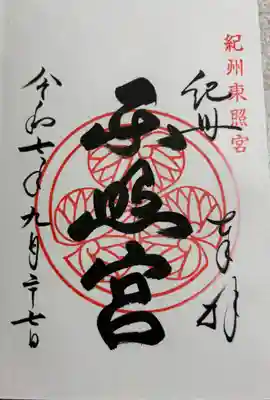 紀州東照宮
紀州
奉拝
東照宮
令和七年九月二十七日